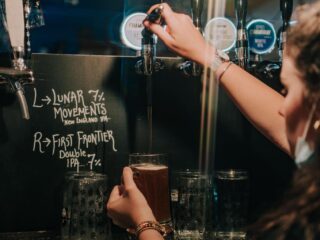 L→LUNAR 7%
MOVEMENTS
NEW ENGLAND IPA
R→FIRST FRONTIER
DOUBLE
IPA 7%